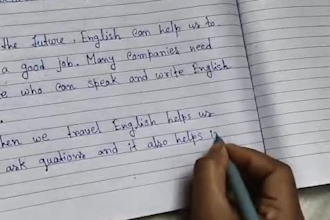 the future, English can help us to
a good job. Many companies need
who can speak and write English
.
hen we travel English helps us
ask quations and it also helps